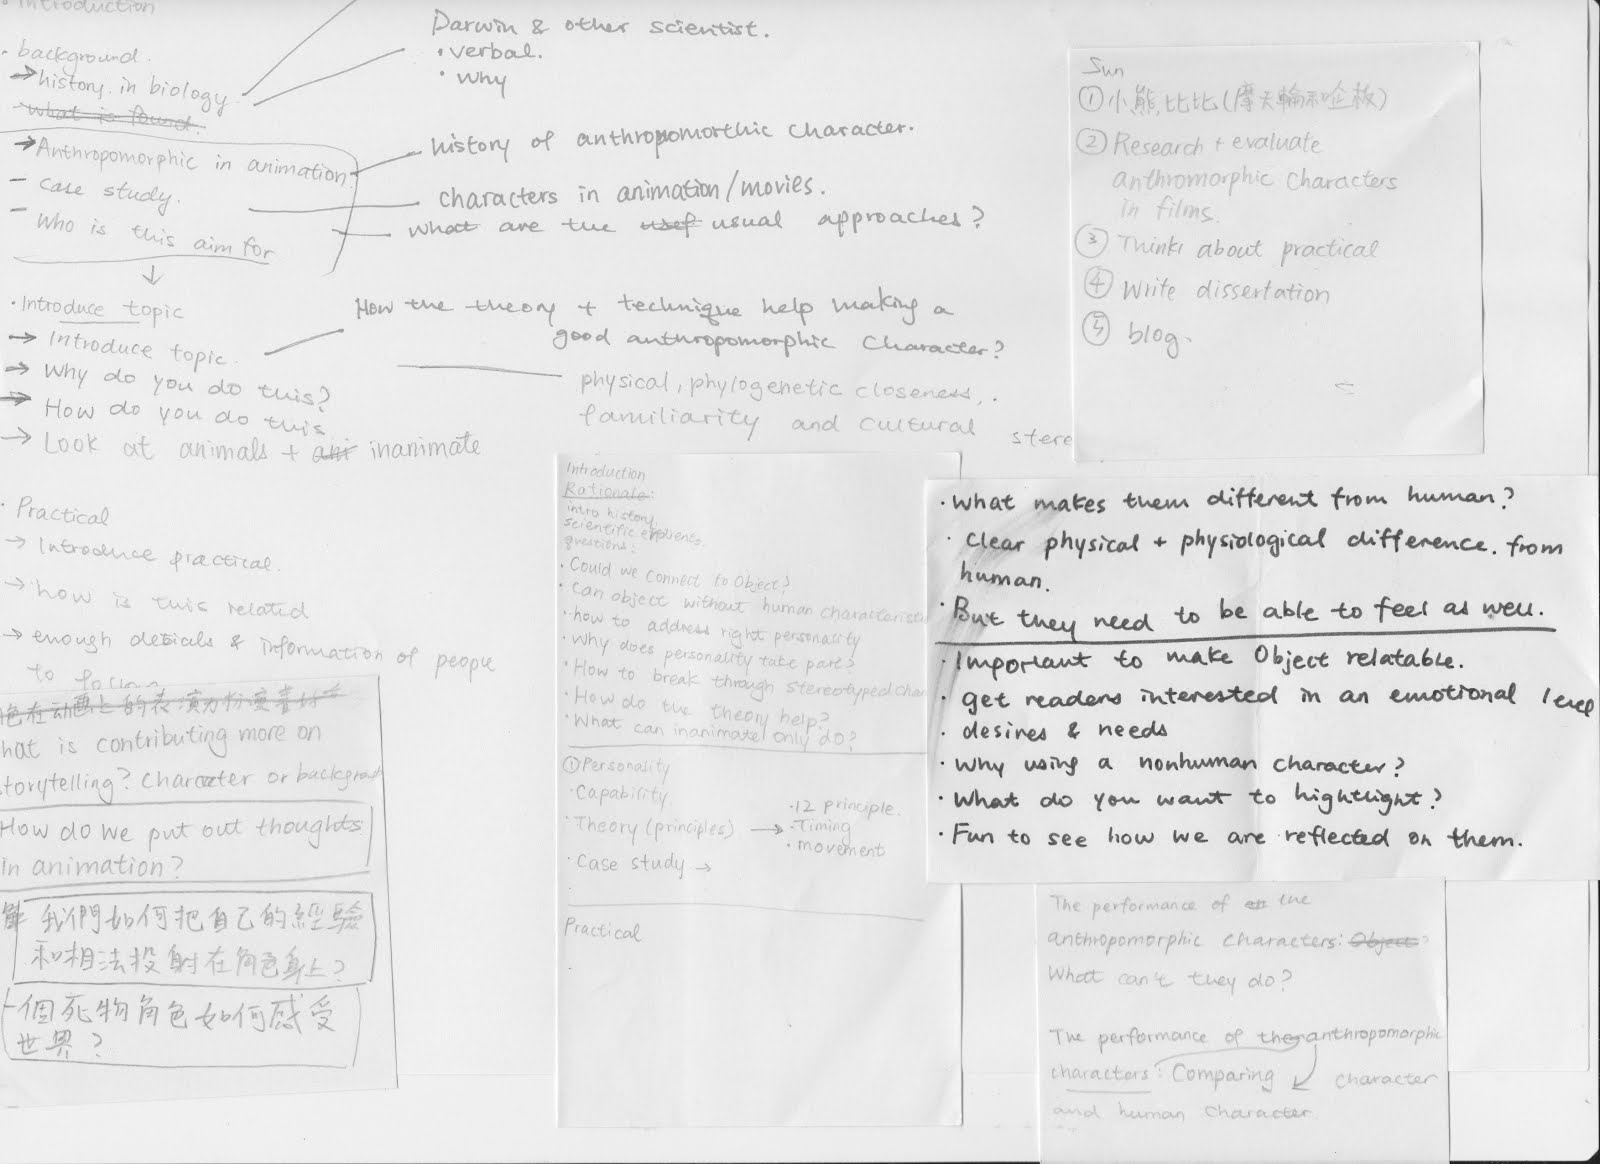 · Introduction
· background.
→ history in biology.
what is found.
→ Anthropomorphic in animation.
– case study.
– Who is this aim for
↓
· Introduce topic
→ Introduce topic.
→ Why do you do this?
→ How do you do this
→ Look at animals + ani inanimate
· Practical
→ Introduce practical.
→ how is this related
→ enough detials & information of people
to follow
Darwin & other scientist.
· verbal.
· why
history of anthropomorthic character.
characters in animation/movies.
what are the usef usual approaches?
How the theory + technique help making a
good anthropomorphic character?
physical, phylogenetic closeness,.
familiarity and cultural stere
Sun
① 小熊比比(摩天輪和企板)
② Research + evaluate
anthromorphic characters
in films.
③ Think about practical
④ Write dissertation
⑤ blog.
色在动画上的表演力
hat is contributing more on
torytelling? character or backgroun
How do we put out thoughts
in animation?
我們如何把自己的經驗
和相法投射在角色身上?
一個死物角色如何感受
世界?
Introduction
Rationale:
intro history
scientific
questions:
· Could we connect to Object?
· Can object without human characteristi
· how to address right personality
· Why does personality take part?
· How to break through stereotyped char
· How do the theory help?
· What can inanimate only do?
① Personality
· Capability
· Theory (principles) →
· 12 principle.
· Timing
· movement
· Case study →
Practical
· What makes them different from human?
· clear physical + physiological difference. from
human.
· But they need to be able to feel as well.
· Important to make Object relatable.
· get readers interested in an emotional level
· desires & needs
· Why using a nonhuman character?
· What do you want to hightlight?
· Fun to see how we are reflected on them.
The performance of the
anthropomorphic characters: Object?
What can't they do?
The performance of the anthropomorphic
characters: Comparing character
and human character.